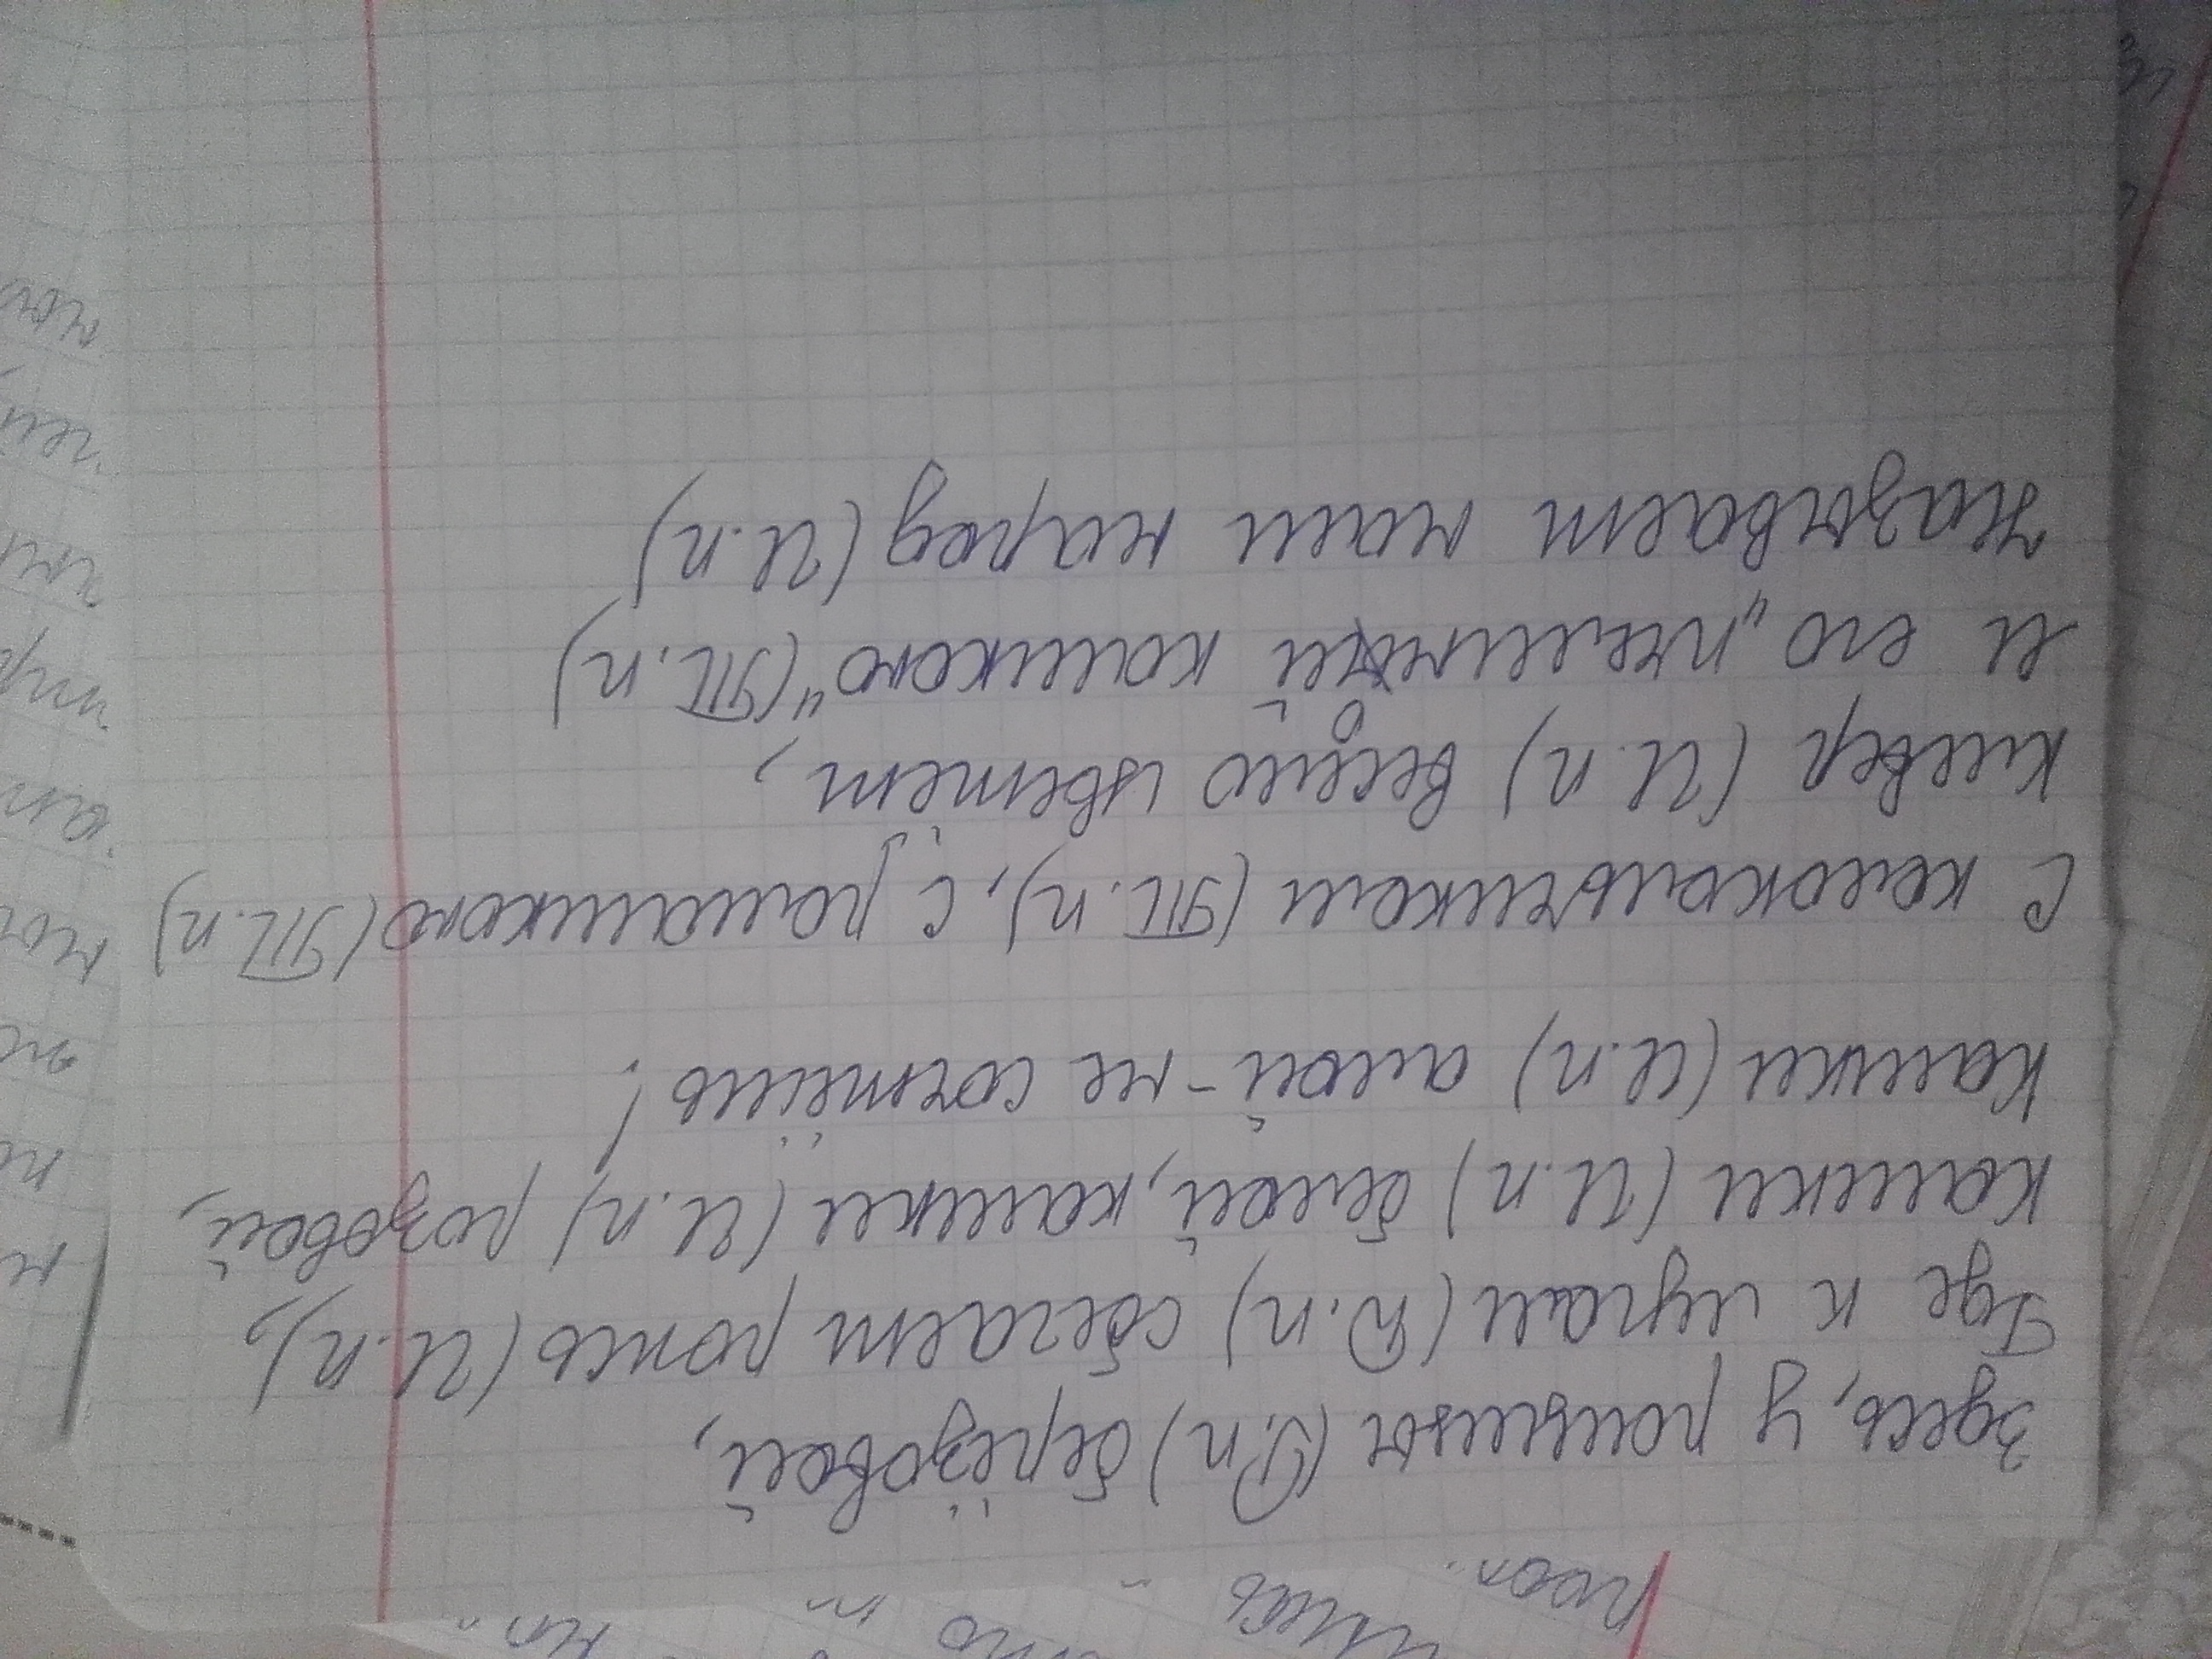 Здесь, у рощицы (Р.п) берёзовой,
Где к лугам (Д.п) сбегает рожь (И.п),
Кашки (И.п) белой, кашки (И.п) розовой,
Кашки (И.п) алой - не сочтёшь!
С колокольчиком (Тв.п), с ромашкою (Тв.п)
Клевер (И.п) весело цветёт,
И его "пчелиной кашкою" (Тв.п)
Называет наш народ (И.п)